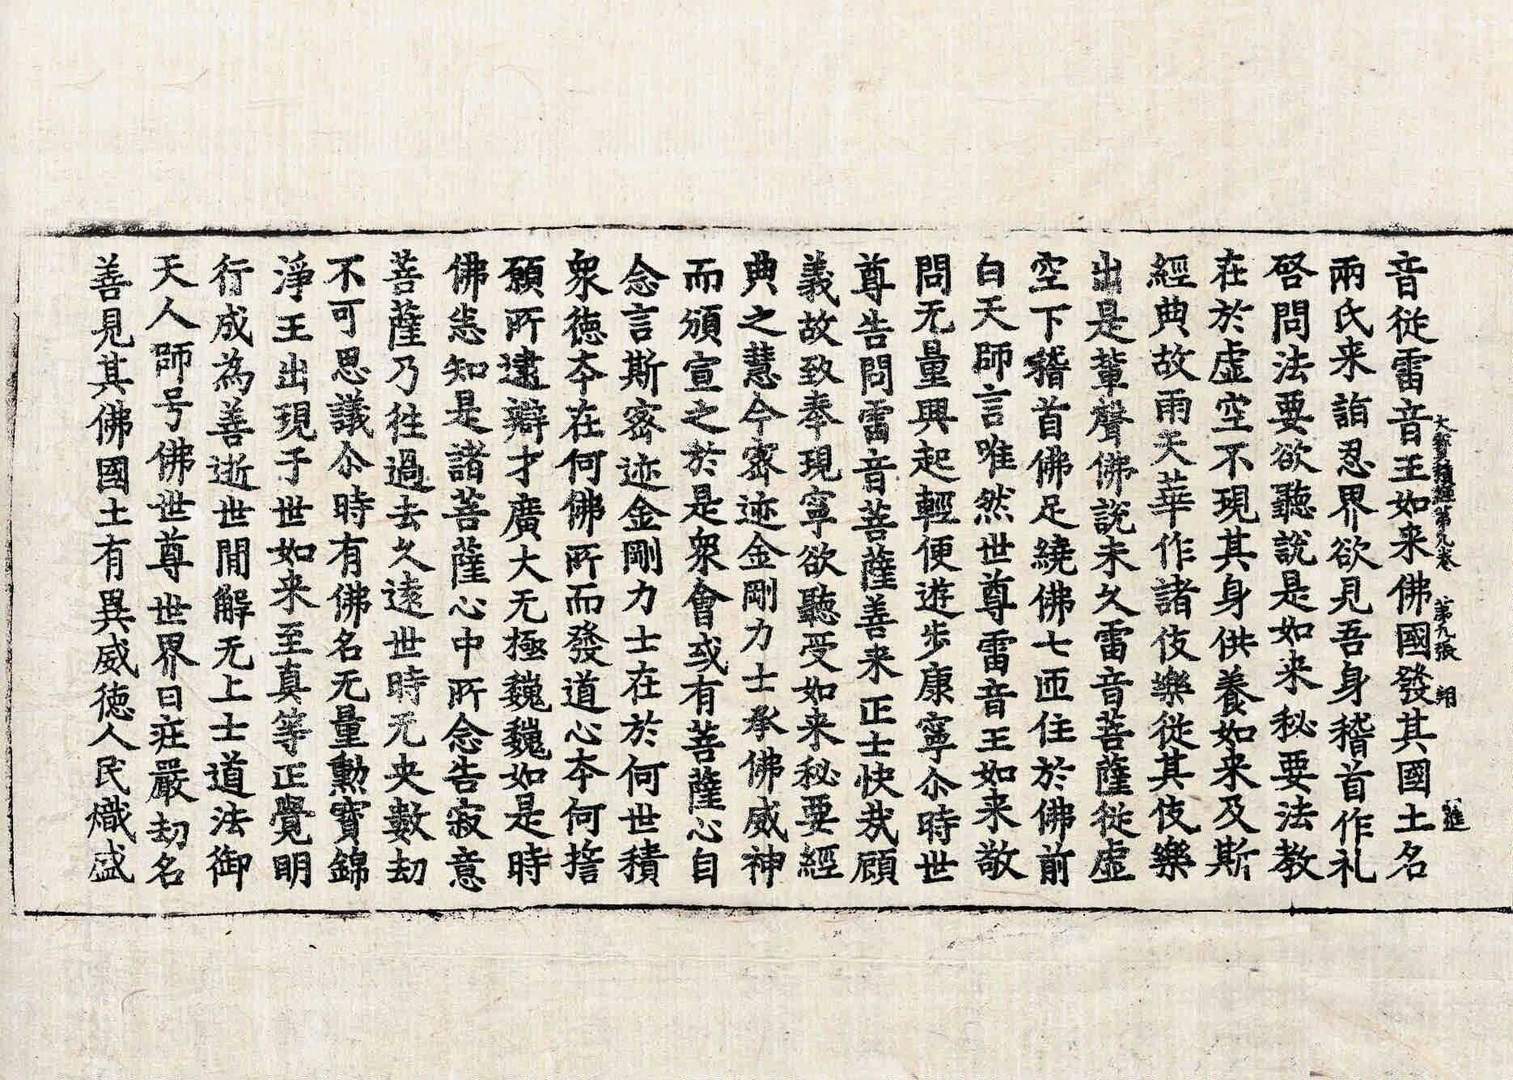 音從雷音王如来佛國發其國土名
大寶積經第九卷 第九張 翔
兩氏来詣忍界欲見吾身稽首作礼
啓問法要欲聽說是如来秘要法教
在於虛空不現其身供養如来及斯
經典故雨天華作諸伎樂從其伎樂
出是輩聲佛說未久雷音菩薩從虛
空下稽首佛足繞佛七匝住於佛前
白天師言唯然世尊雷音王如来敬
問无量興起輕便遊步康寧尒時世
尊告問雷音菩薩善来正士快哉顧
義故致奉現寧欲聽受如来秘要經
典之慧今密迹金剛力士承佛威神
而頒宣之於是衆會或有菩薩心自
念言斯密迹金剛力士在於何世積
衆德夲在何佛所而發道心夲何擔
願所逮辯才廣大无極巍巍如是時
佛悉知是諸菩薩心中所念告寂意
菩薩乃往過去久遠世時无央數劫
不可思議尒時有佛名无量勳寶錦
淨王出現于世如来至真等正覺明
行成為善逝世間解无上士道法御
天人師号佛世尊世界曰莊嚴劫名
善見其佛國土有異威德人民熾盛